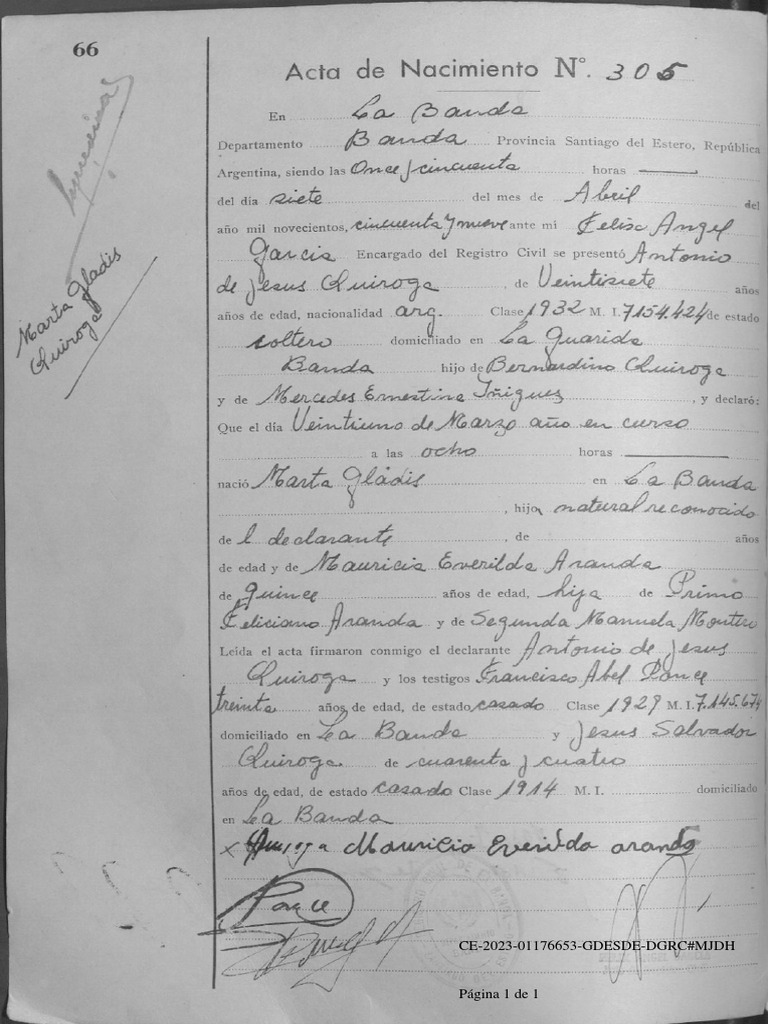 66
Acta de Nacimiento Nº. 305
En La Banda
Departamento Banda Provincia Santiago del Estero, República
Argentina, siendo las Once y cincuenta horas
del día siete del mes de Abril del
año mil novecientos, cincuenta y nueve ante mi Felix Angel
Garcia Encargado del Registro Civil se presentó Antonio
de Jesus Quiroga de Veintisiete años
años de edad, nacionalidad arg. Clase 1932 M. I. 7154.424 de estado
soltero domiciliado en La Guarida
Banda hijo de Bernardino Quiroga
y de Mercedes Ernestina Iñiguez, y declaró:
Que el día Veintiuno de Marzo año en curso
a las ocho horas
nació Marta Gládis en La Banda
, hija natural reconocido
de l declarante, de años
de edad y de Mauricia Everilda Aranda
de quince años de edad, hija de Primo
Feliciano Aranda y de Segunda Manuela Montero
Leída el acta firmaron conmigo el declarante Antonio de Jesus
Quiroga y los testigos Francisco Abel Ponce
treinta años de edad, de estado casado Clase 1929 M. I. 7.145.674
domiciliado en La Banda y Jesus Salvador
Quiroga de cuarenta y cuatro
años de edad, de estado casado Clase 1914 M. I. domiciliado
en La Banda
x Quiroga Mauricia Everilda aranda
Ponce
Marta Gladis
Quiroga
CE-2023-01176653-GDESDE-DGRC#MJDH
Página 1 de 1